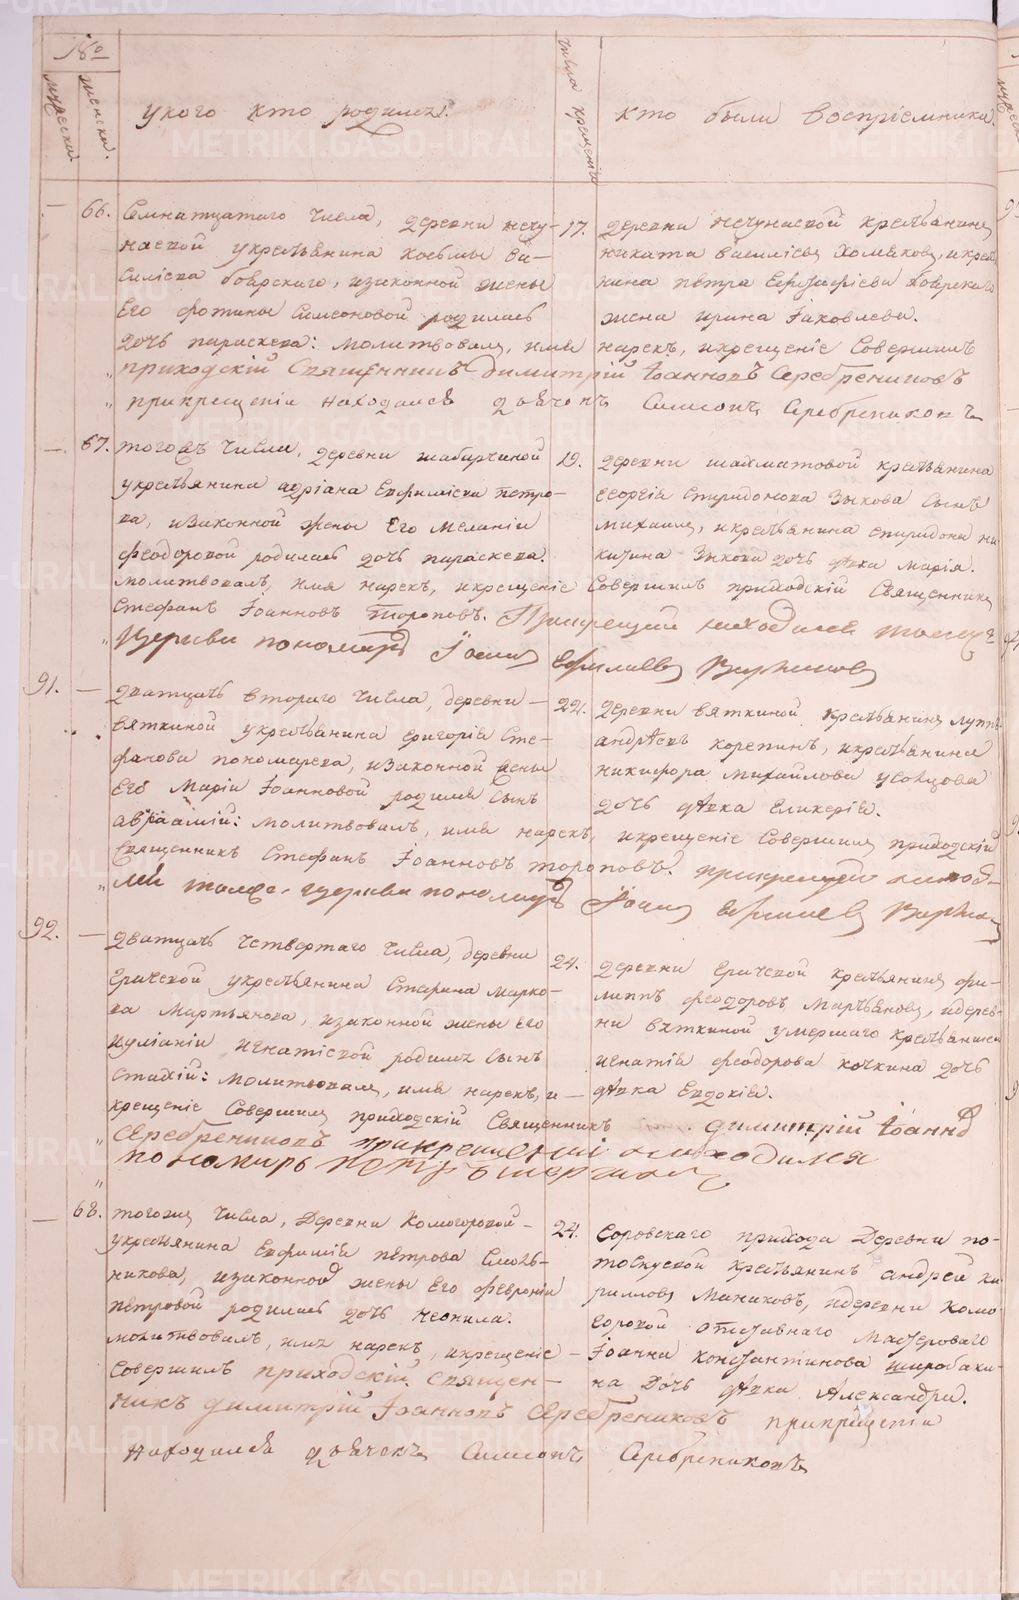 №
мужеска.
женска.
у кого кто родился.
числа крещенiя
кто были воспрiемники.
66. Семнатцатаго числа, деревни нечу-
наевой укрестьянина Косьмы Ва-
силiева боярскаго, изаконной жены
Его Фотины Симеоновой родилась
дочь параскева: молитвовалъ, имя нарекъ, икрещенiе Совершилъ
приходскiй Священникъ Димитрiй Iоанновъ Серебрениковъ
прикрещенiи находился дьячекъ Симеонъ Серебрениковъ
17. деревни нечунаевой крестьянинъ
никита василiевъ Хомяковъ, икресть
нина петра боярскаго
жена ирина Iаковлева.
67. тогожъ числа, деревни шабурчиной
укрестьянина адрiана Евфимiева петро-
ва, изаконной жены Его меланiи
феодоровой родилась дочь параскева.
молитвовалъ, имя нарекъ, икрещенiе Совершилъ приходскiй Священникъ
Стефанъ Iоанновъ Тороповъ. Прикрещенiи находился тоежъ
Церкви пономарь
19. деревни шахматовой крестьянина
георгiя Спиридонова Зыкова Сынъ
михаилъ, икрестьянина спиридона ни
китина Зыкова дочь дѣвка марiя.
91. — дватцать втораго числа, деревни —
вяткиной укрестьянина григорiя Сте-
фанова пономарева, изаконной жены
Его Марiи Iоанновой родился Сынъ
авраамiй: молитвовалъ, имя нарекъ, икрещенiе Совершилъ приходскiй
Священникъ Стефанъ Iоанновъ тороповъ. прикрещенiи находил-
ся тоежъ церкви пономарь
22. деревни вяткиной крестьянинъ луппъ
андреевъ корепинъ, икрестьянина
никифора михайлова усольцова
дочь дѣвка гликерiя.
92. — дватцать четвертаго числа, деревни
Грачевой укрестьянина Марко-
ва Мартьянова, изаконной жены Его
иулiанiи игнатiевой родился Сынъ
Стахiй: молитвовалъ, имя нарекъ, и —
крещенiе Совершилъ приходскiй Священникъ Димитрiй Iоаннов
Серебрениковъ прикрещенiи находился
пономарь петръ
24. деревни Грачевой крестьянинъ фи-
липпъ феодоровъ Мартьяновъ, идерев-
ни вяткиной умершаго крестьянина
игнатiя феодорова кочкина дочь
дѣвка Евдокiя.
68. тогожъ числа, Деревни Комогоровой —
укрестьянина Евфимiя петрова Смоль-
никова, изаконной жены Его февронiи
петровой родилась дочь неонила.
молитвовалъ, имя нарекъ, икрещенiе —
совершилъ приходскiй священ-
никъ Димитрiй Iоанновъ Серебрениковъ прикрещенiи
находился дьячекъ Симеонъ Серебрениковъ
24. Соровскаго прихода Деревни по-
товкусской крестьянинъ андрей ки
рилловъ Маниковъ, идеревни Комо
горовой отставнаго мастероваго
Iоанна константинова широбоки-
на Дочь дѣвка Александра.
METRIKI.GASO-URAL.RU